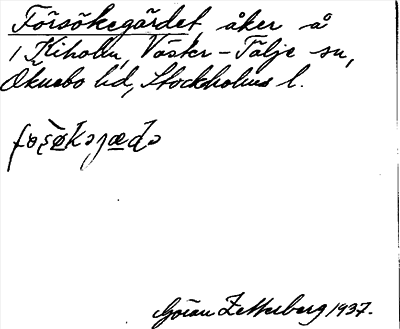 Försökegärdet, åker å
1 Kiholm, Väster-Tälje sn,
Öknebo hd, Stockholms l.
Göran Zetterberg 1937.